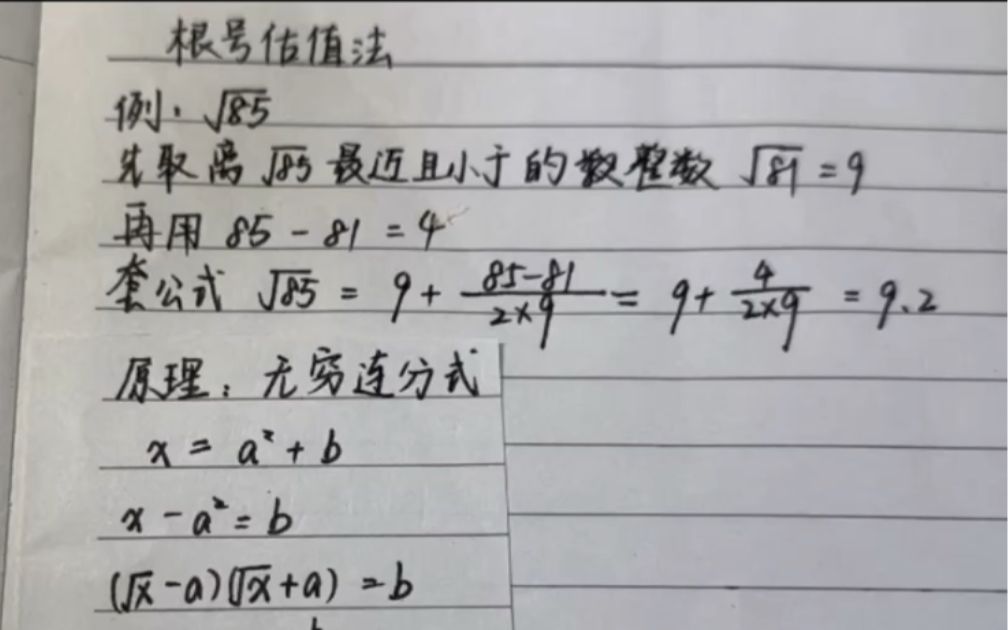 根号估值法
例：√85
先取离√85最近且小于的数整数 √81 = 9
再用 85 - 81 = 4
套公式 √85 = 9 + (85-81)/(2×9) = 9 + 4/(2×9) = 9.2
原理：无穷连分式
x = a² + b
x - a² = b
(√x - a)(√x + a) = b